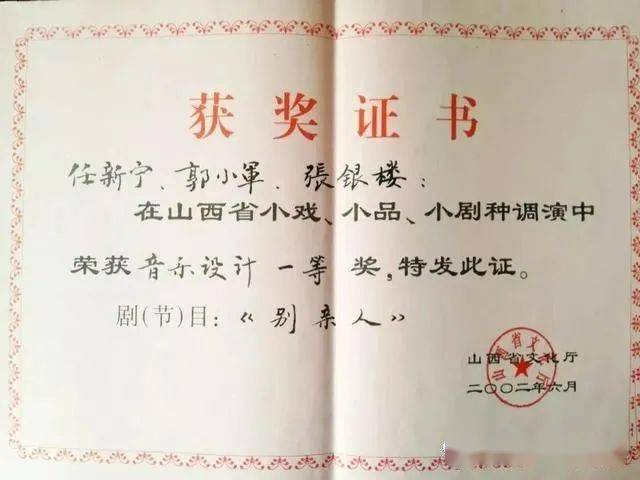 获奖证书
任新宁、郭小軍、張银楼：
在山西省小戏、小品、小剧种调演中
荣获音乐设计一等奖，特发此证。
剧(节)目：《别亲人》
山西省文化厅
山西省文化厅
二〇〇二年六月